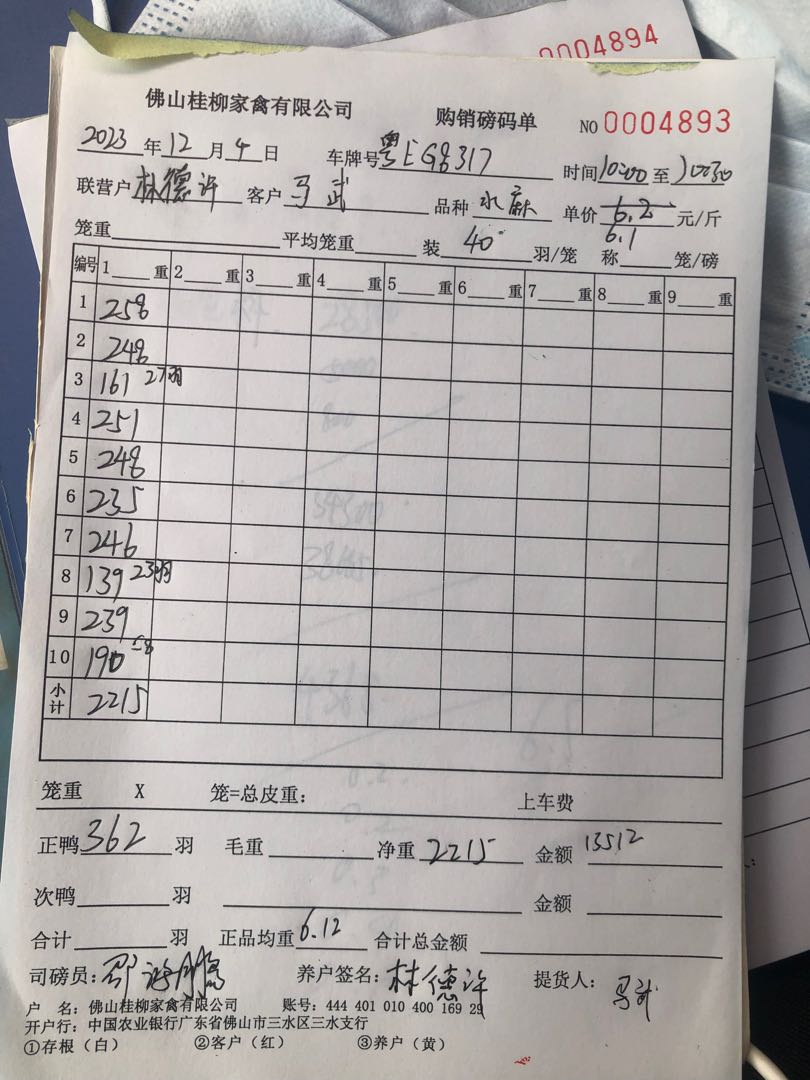 0004894
佛山桂柳家禽有限公司 购销磅码单 NO 0004893
2023 年 12 月 4 日 车牌号 粤EG8317 时间 10:00 至 10:30
联营户 林德许 客户 马武 品种 水麻 单价 6.2 元/斤
6.1
笼重 平均笼重 装 40 羽/笼 称 笼/磅
编号 1 重 2 重 3 重 4 重 5 重 6 重 7 重 8 重 9 重
1 258
2 248
3 161 27羽
4 251
5 248
6 235
7 246
8 139 23羽
9 239
10 190
小计 2215
笼重 X 笼=总皮重: 上车费
正鸭 362 羽 毛重 净重 2215 金额 13512
次鸭 羽 金额
合计 羽 正品均重 6.12 合计总金额
司磅员: 养户签名: 林德许 提货人: 马武
户 名: 佛山桂柳家禽有限公司 账号: 444 401 010 400 169 29
开户行: 中国农业银行广东省佛山市三水区三水支行
①存根（白） ②客户（红） ③养户（黄）